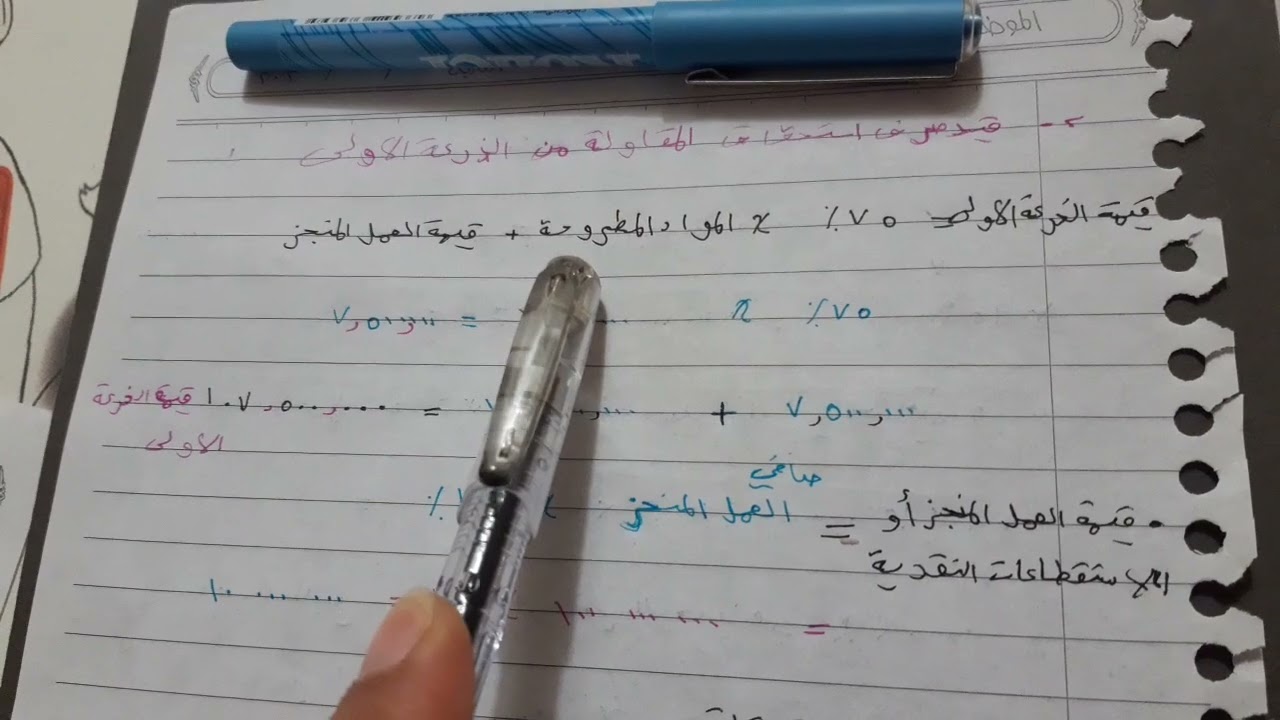 الموضو
٢- قيد صرف استحقاق المقاولة من الذرعة الاولى
قيمة الذرعة الاولى = ٧٥ ٪ × المواد المطروحة + قيمة العمل المنجز
٧٥ ٪ × = ٧,٥٠٠,٠٠٠
٧,٥٠٠,٠٠٠ + = ١٠٧,٥٠٠,٠٠٠ قيمة الذرعة
الاولى
صافي
• قيمة العمل المنجز أو = العمل المنجز × ٪
الاستقطاعات النقدية
= ١٠٠ ٠٠٠ ٠٠٠ ١٠ ٠٠٠ ٠٠٠